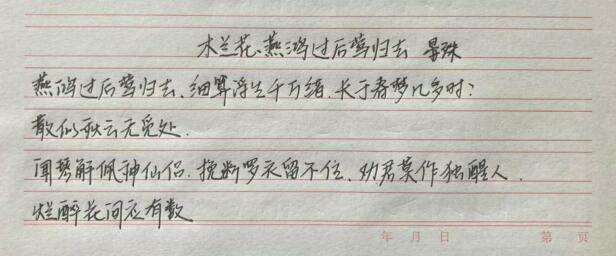 木兰花·燕鸿过后莺归去 晏殊
燕鸿过后莺归去、细算浮生千万绪、长于春梦几多时？
散似秋云无觅处.
闻琴解佩神仙侣.挽断罗衣留不住、劝君莫作独醒人.
烂醉花间应有数
年 月 日 第 页